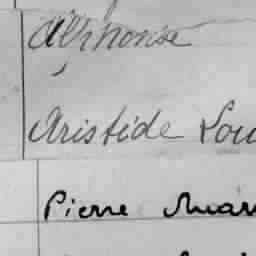 Alphonse
Aristide Lou
Pierre Mar